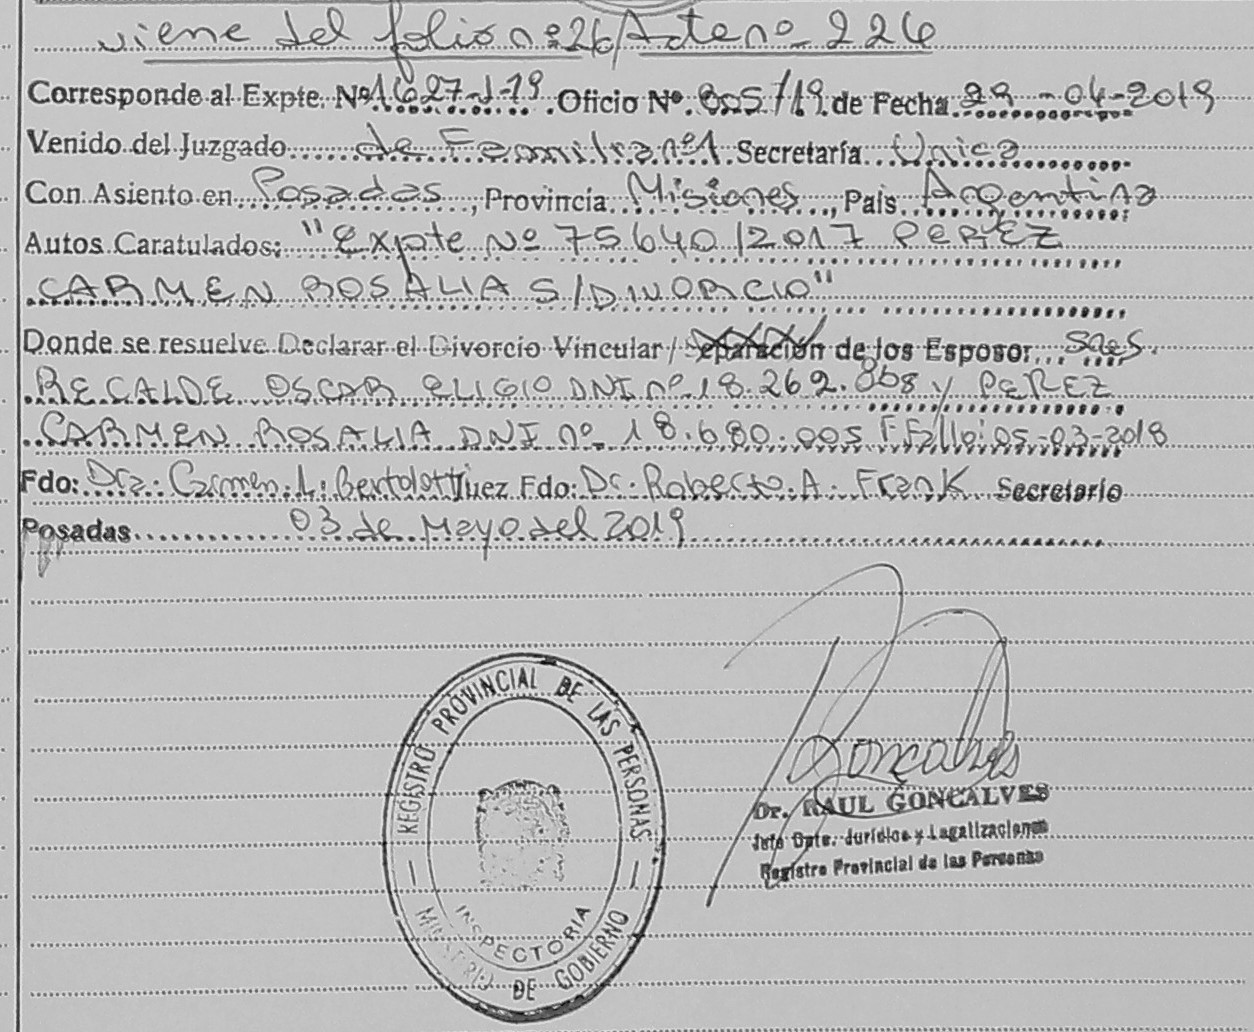 viene del folio nº 26/Acta nº 226
Corresponde al Expte. Nº 1627-J-19. Oficio Nº 805/19 de Fecha 29-04-2019
Venido del Juzgado de Familia nº1. Secretaría Unica
Con Asiento en Posadas, Provincia Misiones, País Argentina
Autos Caratulados: "Expte Nº 75.640/2017 PEREZ
CARMEN ROSALIA S/DIVORCIO"
Donde se resuelve Declarar el Divorcio Vincular / Separación de los Esposor
RECALDE OSCAR ELIGIO DNI nº 18.269.868 y PEREZ
CARMEN ROSALIA DNI nº 18.680.005 F.Fallo: 05-03-2018
Fdo: Dra. Carmen L. Bertolotti Juez Fdo: Dr. Roberto A. Frank Secretario
Posadas 03 de Mayo del 2019
REGISTRO PROVINCIAL DE LAS PERSONAS
INSPECTORIA
MINISTERIO DE GOBIERNO
Goncalves
Dr. RAUL GONCALVES
Jefe Dpto. Jurídico y Legalizaciones
Registro Provincial de las Personas